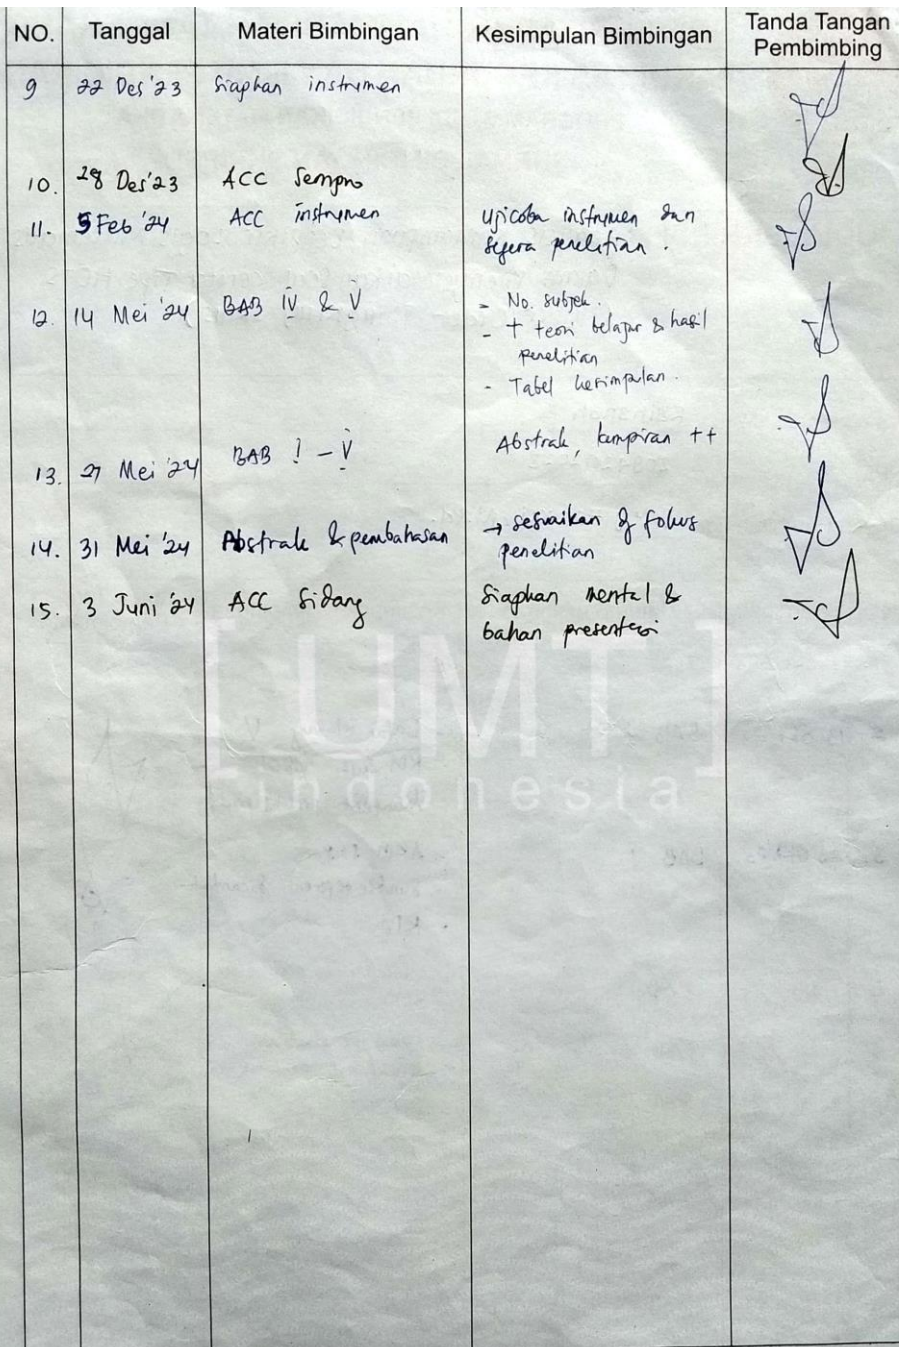 NO. Tanggal Materi Bimbingan Kesimpulan Bimbingan Tanda Tangan Pembimbing
9 22 Des'23 Siapkan instrumen
10. 28 Des'23 ACC Sempro
11. 5 Feb '24 ACC instrumen Ujicoba instrumen dan
segera penelitian.
12. 14 Mei '24 BAB IV & V - No. subjek.
- + teori belajar & hasil
penelitian
- Tabel kesimpulan.
13. 27 Mei '24 BAB I - V Abstrak, lampiran ++
14. 31 Mei '24 Abstrak & pembahasan → sesuaikan dg fokus
penelitian
15. 3 Juni '24 ACC Sidang Siapkan mental &
bahan presentasi
[UMT]
indonesia